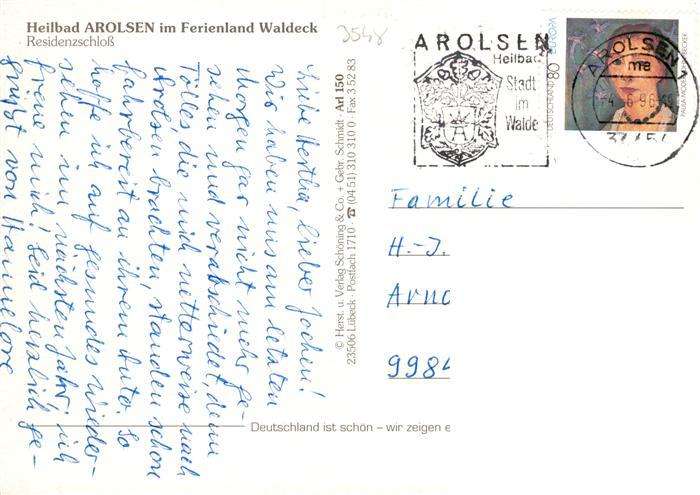 Heilbad AROLSEN im Ferienland Waldeck
Residenzschloß
3548
AROLSEN
Heilbad
Stadt
im
Walde
DEUTSCHLAND 80 EUROPA
AROLSEN 1
ma
Liebe Hertha, lieber Jochen!
Wir haben uns am letzten
Morgen gar nicht mehr ge-
sehen und verabschiedet, denn
Tölles die mich netterweise nach
Arolsen brachten, standen schon
fahrbereit an ihrem Auto. So
hoffe ich auf gesundes Wieder-
sehen im nächsten Jahr, ich
freue mich! Seid herzlich ge-
grüßt von Hannelore
© Herst. u. Verlag Schöning & Co. + Gebr. Schmidt · Arl 150
23506 Lübeck · Postfach 1710 · ☎ (04 51) 310 310 0 · Fax 3 52 83
Familie
H.-J.
Arno
9984
Deutschland ist schön – wir zeigen e